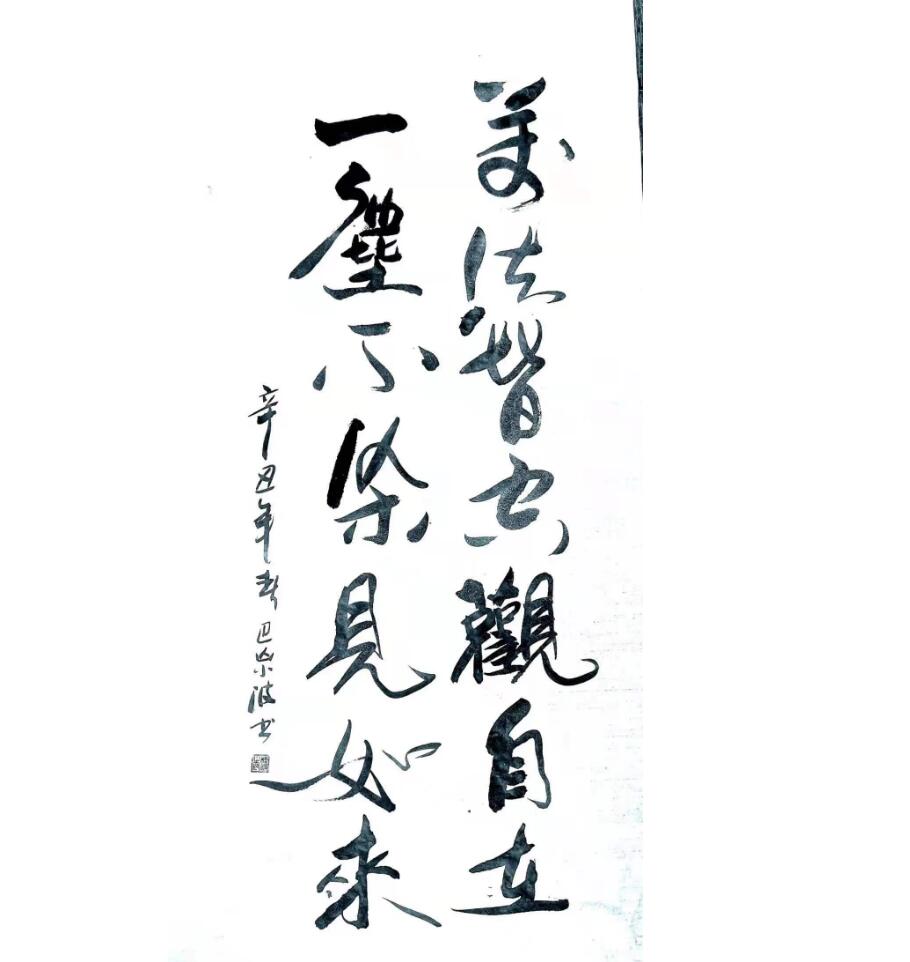 萬法皆空觀自在
一塵不染見如來
辛丑年春巴樂波书